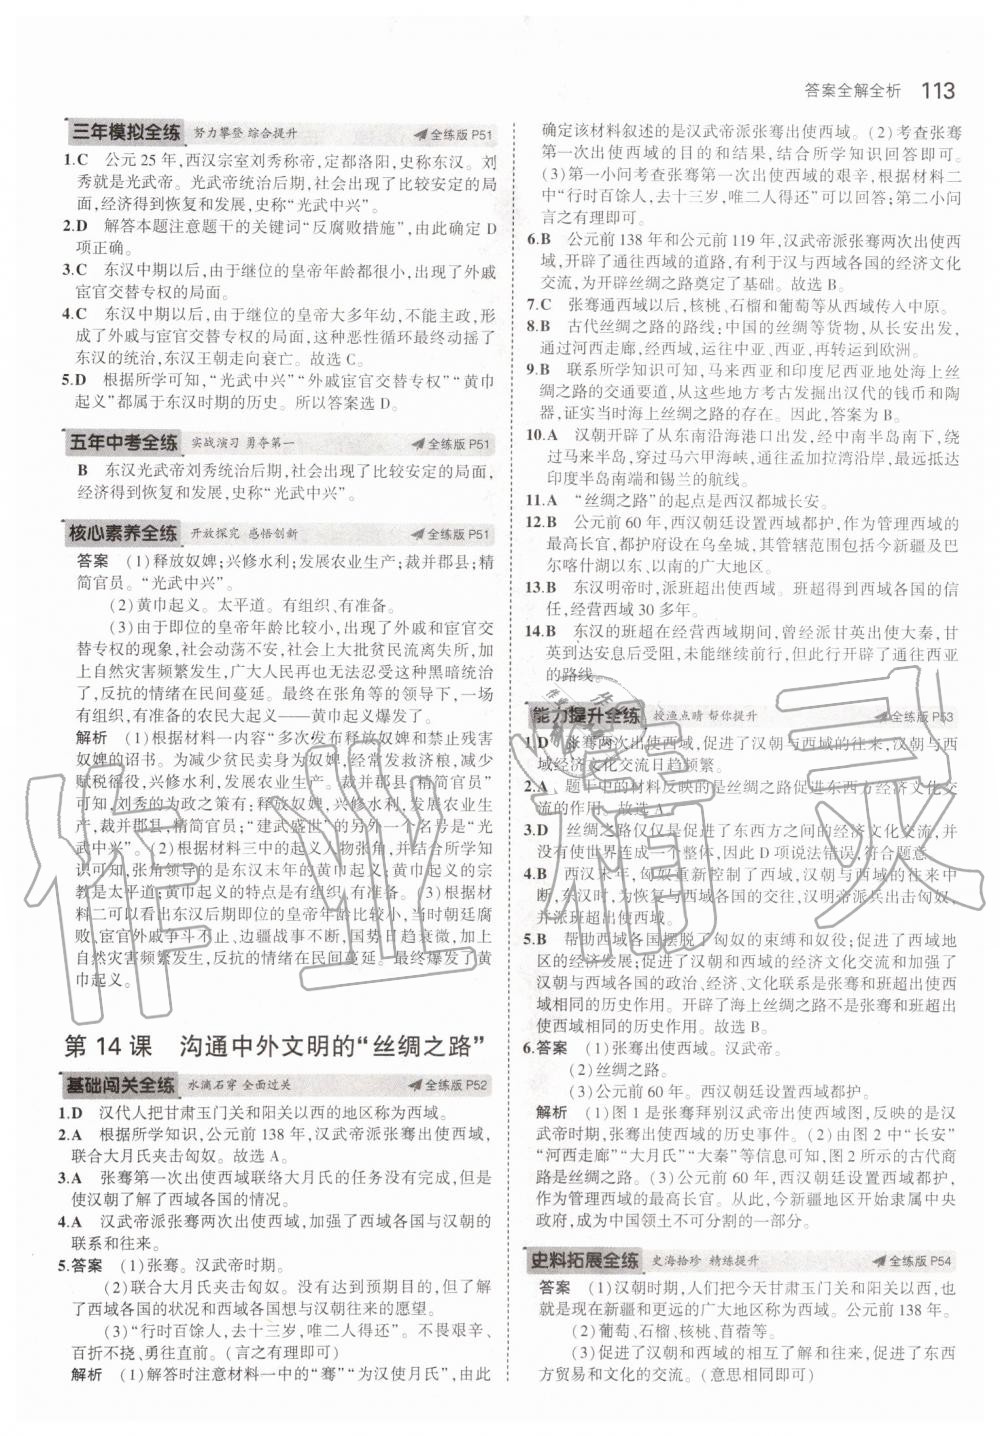 答案全解全析 113
三年模拟全练 努力攀登 综合提升 全练版 P51
1.C 公元 25 年,西汉宗室刘秀称帝,定都洛阳,史称东汉。刘
秀就是光武帝。光武帝统治后期,社会出现了比较安定的局
面,经济得到恢复和发展,史称“光武中兴”。
2.D 解答本题注意题干的关键词“反腐败措施”,由此确定 D
项正确。
3.C 东汉中期以后,由于继位的皇帝年龄都很小,出现了外戚
宦官交替专权的局面。
4.C 东汉中期以后,由于继位的皇帝大多年幼,不能主政,形
成了外戚与宦官交替专权的局面,这种恶性循环最终动摇了
东汉的统治,东汉王朝走向衰亡。故选 C。
5.D 根据所学可知,“光武中兴”“外戚宦官交替专权”“黄巾
起义”都属于东汉时期的历史。所以答案选 D。
五年中考全练 实战演习 勇夺第一 全练版 P51
B 东汉光武帝刘秀统治后期,社会出现了比较安定的局面,
经济得到恢复和发展,史称“光武中兴”。
核心素养全练 开放探究 感悟创新 全练版 P51
答案 (1)释放奴婢;兴修水利;发展农业生产;裁并郡县;精
简官员。“光武中兴”。
(2)黄巾起义。太平道。有组织、有准备。
(3)由于即位的皇帝年龄比较小,出现了外戚和宦官交
替专权的现象,社会动荡不安,社会上大批农民流离失所,加
上自然灾害频繁发生,广大人民再也无法忍受这种黑暗统治
了,反抗的情绪在民间蔓延。最终在张角等的领导下,一场
有组织、有准备的农民大起义——黄巾起义爆发了。
解析 (1)根据材料一内容“多次发布释放奴婢和禁止残害
奴婢的诏书。为减少贫民卖身为奴婢,经常发救济粮,减少
赋税徭役,兴修水利,发展农业生产。裁并郡县,精简官员”
可知,刘秀的为政之策有:释放奴婢,兴修水利,发展农业生
产,裁并郡县,精简官员;“建武盛世”的另外一个名号是“光
武中兴”。(2)根据材料三中的起义人物张角,并结合所学知
识可知,张角领导的是东汉末年的黄巾起义;黄巾起义的宗
教是太平道;黄巾起义的特点是有组织、有准备。(3)根据材
料二可以看出东汉后期即位的皇帝年龄比较小,当时朝廷腐
败,宦官外戚争斗不止、边疆战事不断,国势日趋衰微,加上
自然灾害频繁发生,反抗的情绪在民间蔓延,最终爆发了黄
巾起义。
第 14 课 沟通中外文明的“丝绸之路”
基础闯关全练 水滴石穿 全面过关 全练版 P52
1.D 汉代人把甘肃玉门关和阳关以西的地区称为西域。
2.A 根据所学知识,公元前 138 年,汉武帝派张骞出使西域,
联合大月氏夹击匈奴。故选 A。
3.A 张骞第一次出使西域联络大月氏的任务没有完成,但是
使汉朝了解了西域各国的情况。
4.A 汉武帝派张骞两次出使西域,加强了西域各国与汉朝的
联系和往来。
5.答案 (1)张骞。汉武帝时期。
(2)联合大月氏夹击匈奴。没有达到预期目的,但是了解
了西域各国的状况和西域各国想与汉朝往来的愿望。
(3)“行时百馀人,去十三岁,唯二人得还”。不畏艰辛、
百折不挠、勇往直前。(言之有理即可)
解析 (1)解答时注意材料一中的“骞”“为汉使月氏”,由此
确定该材料叙述的是汉武帝派张骞出使西域。(2)考查张骞
第一次出使西域的目的和结果,结合所学知识回答即可。
(3)第一小问考查张骞第一次出使西域的艰辛,根据材料二
中“行时百馀人,去十三岁,唯二人得还”可以回答;第二小问
言之有理即可。
6.B 公元前 138 年和公元前 119 年,汉武帝派张骞两次出使西
域,开辟了通往西域的道路,有利于汉与西域各国的经济文化
交流,为开辟丝绸之路奠定了基础。故选 B。
7.C 张骞通西域以后,核桃、石榴和葡萄等从西域传入中原。
8.B 古代丝绸之路的路线:中国的丝绸等货物,从长安出发,
通过河西走廊,经西域,运往中亚、西亚,再转运到欧洲。
9.B 联系所学知识可知,马来西亚和印度尼西亚地处海上丝
绸之路的交通要道,从这些地方考古发掘出汉代的钱币和陶
器,证实当时海上丝绸之路的存在。因此,答案为 B。
10.A 汉朝开辟了从东南沿海港口出发,经中南半岛南下,
绕过马来半岛,穿过马六甲海峡,通往孟加拉湾沿岸,最远抵达
印度半岛南端和锡兰的航线。
11.A “丝绸之路”的起点是西汉都城长安。
12.B 公元前 60 年,西汉朝廷设置西域都护,作为管理西域的
最高长官,都护府设在乌垒城,其管辖范围包括今新疆及巴
尔喀什湖以东、以南的广大地区。
13.B 东汉明帝时,派班超出使西域,他得到西域各国的信
任,经营西域 30 多年。
14.B 东汉的班超在经营西域期间,曾经派甘英出使大秦,甘
英到达安息后受阻,未能继续前行,但此行开辟了通往西亚
的路线。
能力提升全练 授渔点睛 帮你提升 全练版 P53
1.D 张骞两次出使西域,促进了汉朝与西域的往来,汉朝与西
域经济文化交流日趋频繁。
2.A 题干中的材料反映的是丝绸之路促进东西方经济文化交
流的作用。故选 A。
3.D 丝绸之路仅仅是促进了东西方之间的经济文化交流,并
没有使世界连成一个整体,因此 D 项说法错误,符合题意。
4.B 西汉末年,匈奴重新控制了西域,汉朝与西域的往来中
断,东汉时,为恢复与西域各国的交往,汉明帝派兵出击匈奴,
并派班超出使西域。
5.B 帮助西域各国摆脱了匈奴的束缚和奴役;促进了西域地
区的经济发展;促进汉朝和西域的经济文化交流和加强了
汉朝与西域各国的政治、经济、文化联系是张骞和班超出使
西域相同的历史作用。开辟了海上丝绸之路不是张骞和班超出
使西域相同的历史作用。故选 B。
6.答案 (1)张骞出使西域。汉武帝。
(2)丝绸之路。
(3)公元前 60 年。西汉朝廷设置西域都护。
解析 (1)图 1 是张骞拜别汉武帝出使西域图,反映的是汉
武帝时期,张骞出使西域的历史事件。(2)由图 2 中“长安”
“河西走廊”“大月氏”“大秦”等信息可知,图 2 所示的古代商
路是丝绸之路。(3)公元前 60 年,西汉朝廷设置西域都护,
作为管理西域的最高长官。从此,今新疆地区开始隶属中央
政府,成为中国领土不可分割的一部分。
史料拓展全练 史海拾珍 精练提升 全练版 P54
答案 (1)汉朝时期,人们把今天甘肃玉门关和阳关以西,也
就是现在新疆和更远的广大地区称为西域。公元前 138 年。
(2)葡萄、石榴、核桃、苜蓿等。
(3)促进了汉朝和西域的相互了解和往来,促进了东西
方贸易和文化的交流。(意思相同即可)
作业精灵